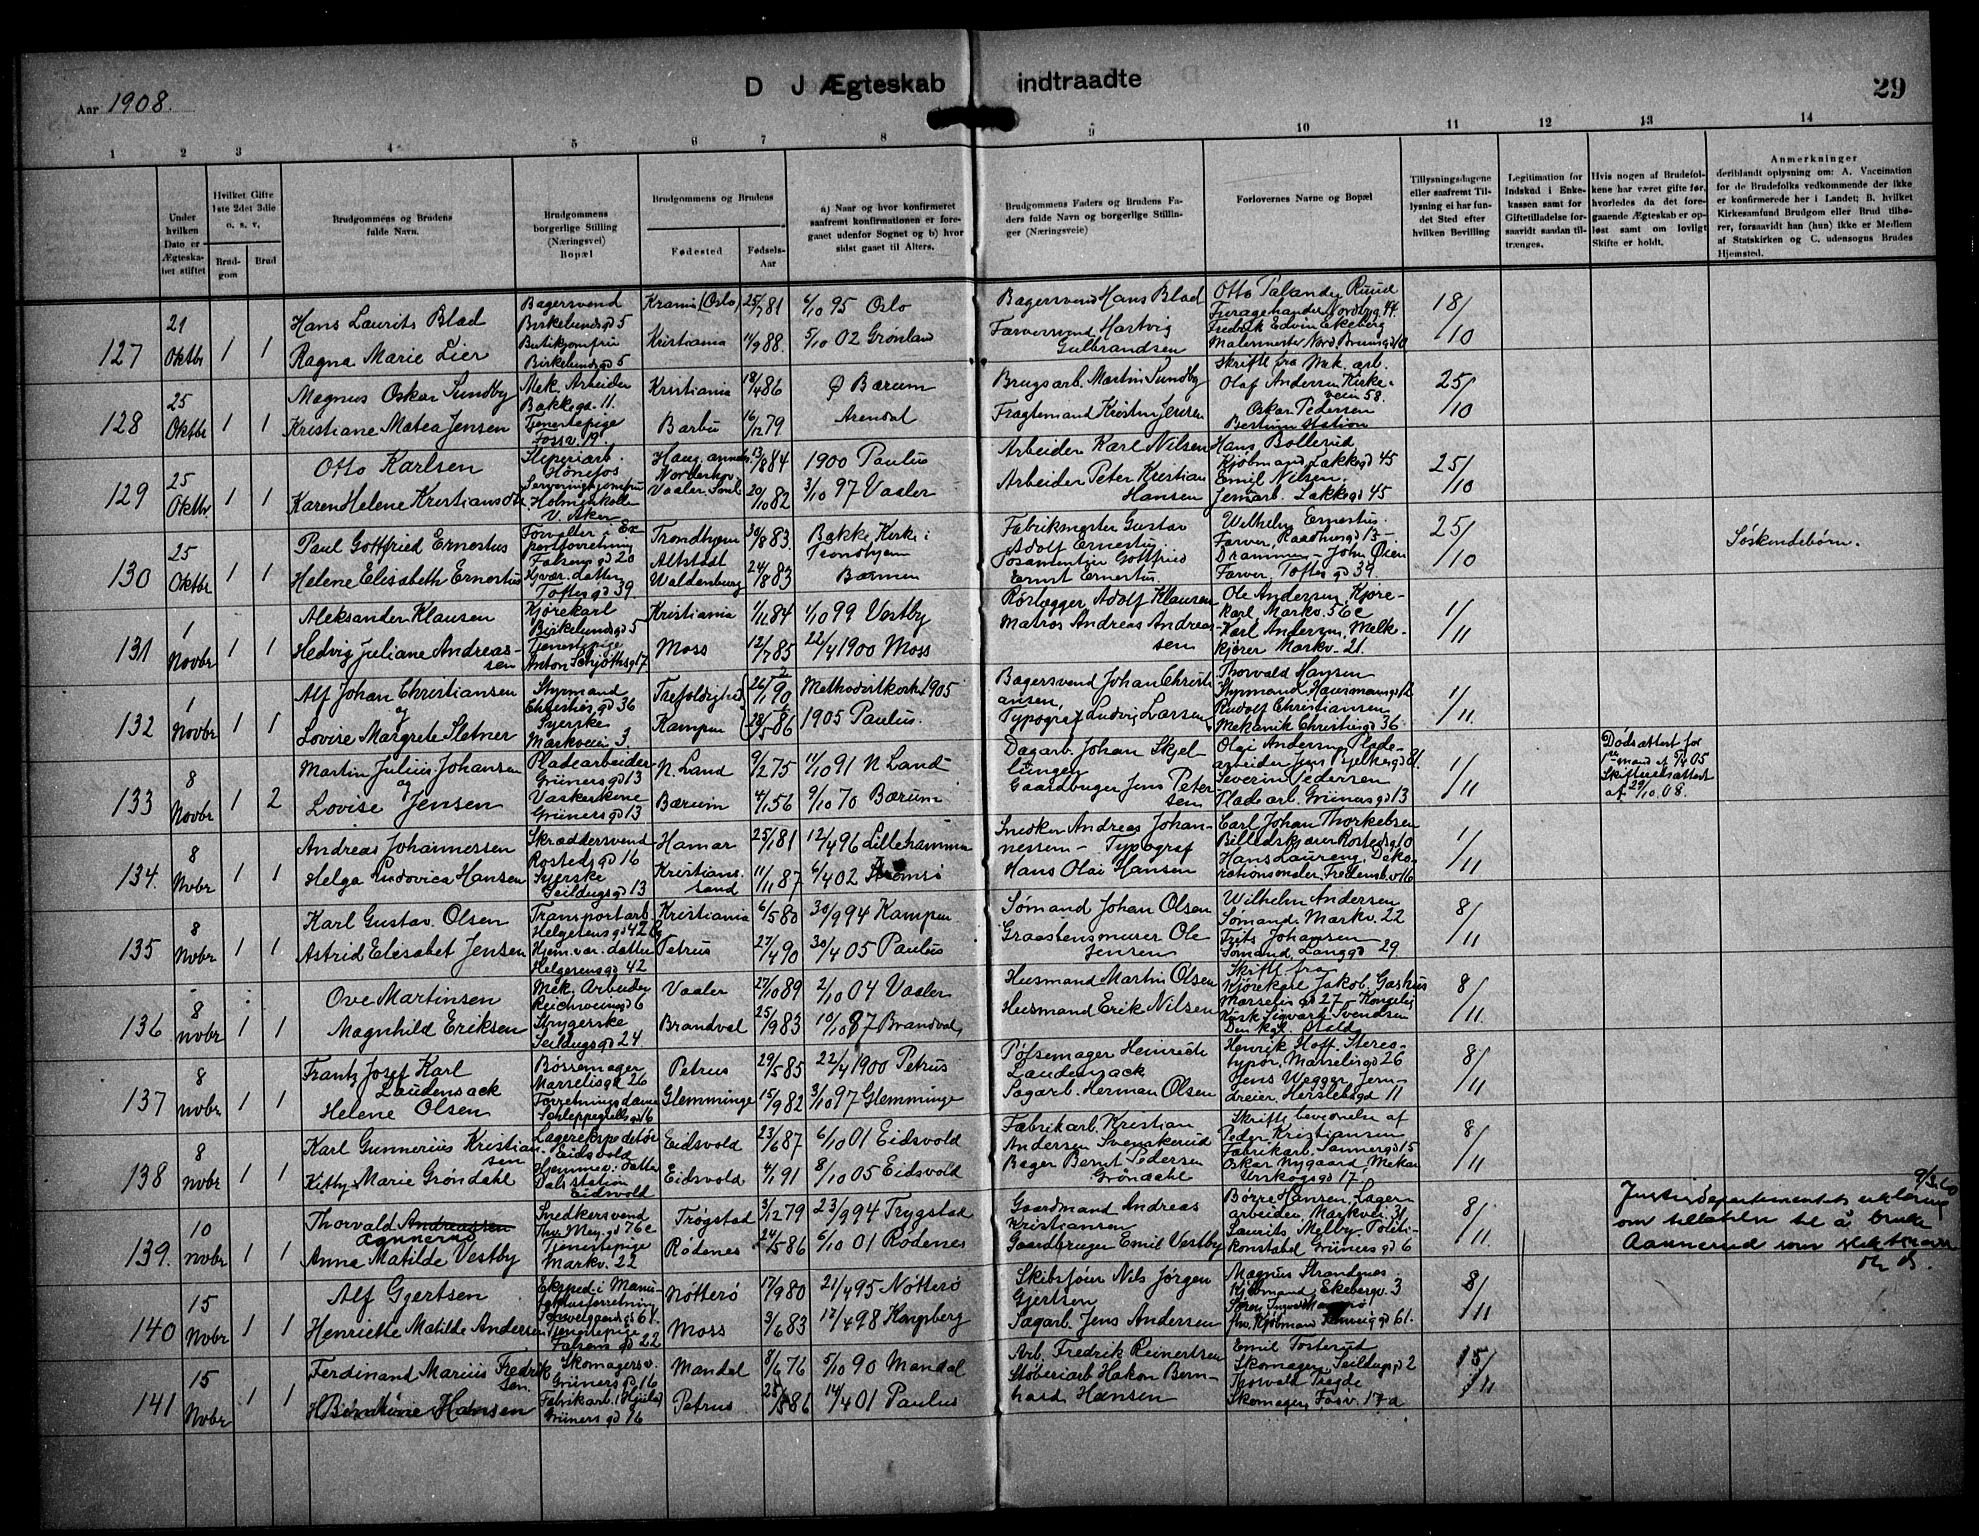 Aar 1908.
D J Ægteskab indtraadte
29
1 2 3 4 5 6 7 8 9 10 11 12 13 14
Under hvilken Dato er Ægteskabet stiftet
Hvilket Gifte 1ste 2det 3die o. s. v,
Brudgom
Brud
Brudgommens og Brudens fulde Navn.
Brudgommens borgerlige Stilling (Næringsvei) Bopæl
Brudgommens og Brudens
Fødested
Fødsels-Aar
a) Naar og hvor konfirmeret saafremt konfirmationen er foregaaet udenfor Sognet og b) hvor sidst gaaet til Alters.
Brudgommens Faders og Brudens Faders fulde Navn og borgerlige Stillinger (Næringsveie)
Forlovernes Navne og Bopæl
Tillysningsdagene eller saafremt Tillysning ei har fundet Sted efter hvilken Bevilling
Legitimation for Indskud i Enkekassen samt for Giftetilladelse forsaavidt saadan tiltrænges.
Hvis nogen af Brudefolkene har været gifte før, hvorledes da det foregaaende Ægteskab er opløst samt om lovligt Skifte er holdt.
Anmerkninger deriblandt oplysning om: A. Vaccination for de Brudefolks vedkommende der ikke er konfirmerede her i Landet; B. hvilket Kirkesamfund Brudgom eller Brud tilhører, forsaavidt han (hun) ikke er Medlem af Statskirken og C. udensogns Brudes Hjemsted.
127 21 Oktbr 1 1
Hans Laurits Blad
Ragna Marie Lier
Bagersvend
Birkelundsgd 5
Butikjomfru
Birkelundsgd 5
Krania (Oslo) 25/7 81 6/10 95 Oslo
Kristiania 11/9 88. 5/10 02 Grønland
Bagersvend Hans Blad
Farversvend Hartvig
Gulbrandsen
Otto Palander Ruud
Fredrik Edvin Ekeberg
18/10
128 25 Oktbr 1 1
Magnus Oskar Sundby
Kristiane Matea Jensen
Mek. Arbeider
Bakkegd. 11.
Tjenestepige
Fossv. 19
Kristiania 18/4 86 Ø Bærum
Barbu 16/12 79 Arendal
Brugsarb. Martin Sundby
Fragtemand Kristen Jensen
Skriftl. fra Mek. arb.
Olaf Andersen Kirke-
veien 58.
Oskar Pedersen
25/10
129 25 Oktbr. 1 1
Otto Karlsen
Karen Helene Kristiansdtr.
Sliperiarb.
Hønefos
Holmenkollen
V. Aker
13/8 84 1900 Paulus
20/10 82 3/10 97 Vaaler
Arbeider Karl Nilsen
Arbeider Peter Kristian
Hansen
Hans Bollerud
Kjøbmand, Lakkegd 45
Emil Nilsen,
Jernarb. Lakkegd 45
25/10
130 25 Oktbr 1 1
Paul Gottfried Ernestus
Helene Elisabeth Ernestus
Forvalter i Ex
portforretning
Falsens gd 20
Hjvær. datter
Toftes gd 39
Trondhjem 30/8 83. Bakke Kirke i
Trondhjem
Altstadt
Waldenburg 24/8 83 Barmen
Fabrikmester Gustav
Adolf Ernestus.
Posamentier Gottfried
Ernst Ernestus.
Wilhelm Ernestus.
Farver, Raadhusgd 13 –
Drammen – John Øien
Farver, Toftes gd 39.
25/10
Søskendebørn.
131 1 Novbr 1 1
Aleksander Klausen
Hedvig Juliane Andreas-
sen
Kjørekarl
Birkelundsgd 5
Tjenestepige
Anton Schjøthsgd 17
Kristiania 1/11 84 1/10 99 Vestby
Moss 12/7 85 22/4 1900 Moss
Rørlægger Adolf Klausen
Matros Andreas Andreas-
sen
Ole Andersen Kjøre-
karl, Markv. 56c
Karl Andersen, Melke-
kjører Markv. 21.
1/11
132 1 Novbr 1 1
Alf Johan Christiansen
og
Lovise Margrete Sletner
Styrmand
Christies gd 36
Syerske
Markveien 3
Trefoldighed 26/1 90 Methodistkirken 1905
Kampen 28/5 86 1905 Paulus.
Bagersvend Johan Christi
ansen,
Typograf Ludvig Larsen
Thorvald Hansen
Styrmand Hausmannsgd 12
Rudolf Christiansen
Mekanik Christiesgd 36
1/11
133 8 Novbr 1 2
Martin Julius Johansen
og
Lovise Jensen
Pladearbeider
Grüners gd 13
Vaskerkone
Grüners gd 13
N. Land 9/2 75 11/10 91 N Land
Bærum 4/1 56 9/10 70 Bærum
Dagarb. Johan Skjel
lungen
Gaardbruger Jens Peter-
sen
Olai Andersen Plade-
arbeider Jens Bjelkesgd 81.
Severin Pedersen
Pladearb. Grünersgd 13
1/11
Dødsattest for
Skifteretsattest
af 29/10 08.
134. 8 Nvbr 1 1
Andreas Johannessen
Helga Ludovica Hansen
Skræddersvend
Rosteds gd 16
Syerske
Seildugsgd 13
Hamar 25/1 81 12/4 96 Lillehammer
Kristians-
sand 11/11 87 6/4 02
Snedker Andreas Johan-
nessen – Typograf
Hans Olai Hansen
Carl Johan Thorkelsen
Billedskjærer Rostedsgd 10
Hans Laureng, Deko-
rationsmaler, Fredensb.v 16
1/11
135 8 Nvbr 1 1
Karl Gustav Olsen
Astrid Elisabet Jensen
Transportarb
Helgesens gd 42
Hjem.vær. datter
Helgesens gd 42
Kristiania 6/5 80 30/9 94 Kampen
Petrus 27/4 90 30/4 05 Paulus
Sømand Johan Olsen
Graastensmurer Ole
Jensen
Wilhelm Andersen
Sømand Markv. 22
Frits Johansen
Sømand, Langgd 29
8/11
136 8 nvbr 1 1
Ove Martinsen
Magnhild Eriksen
Mek. Arbeider
Reichweinsgd 6
Strygerske
Seildugsgd 24
Vaaler 27/10 89 2/10 04 Vaaler
Brandval 25/9 83 10/10 87 Brandval,
Husmand Martin Olsen
Husmand Erik Nilsen
Skriftl. fra
Kjørekarl Jakob Gashus
Marselis gd 27 – Kongelig
Kusk Sigvart Svendsen
Den kgl. Stald
8/11.
137 8 nvbr 1 1
Frantz Josef Karl
Laudensack
Helene Olsen
Børsemager
Marselisgd 26
Forretningsdame
Schleppegrells gd 16
Petrus 29/5 85 22/4 1900 Petrus
Glemminge 15/9 82 3/10 97 Glemminge
Pølsemager Heinrich
Laudensack
Sagarb. Herman Olsen
Henrik Hoff. Stereo-
typør, Marselisgd 26
Jens Wegger, Jern-
dreier, Herslebsgd 11
8/11
138 8 nvbr 1 1
Karl Gunnerius Kristian
sen
Kitty Marie Grøndahl
Lagerexpeditør
Eidsvold
Hjemmev. datter
Dal station
Eidsvold
Eidsvold 23/6 87 6/10 01 Eidsvold
Eidsvold 4/1 91 8/10 05 Eidsvold
Fabrikarb. Kristian
Andersen Svenskerud
Bager Bernt Pedersen
Grøndahl
Skriftl. bevidnelse af
Peder Kristiansen
Fabrikarb. Sannergd 15
Oskar Nygaard, Mekan
Urskogsgd 17
8/11
139. 10 nvbr 1 1
Thorvald Andreassen
Aannerud
Anna Matilde Vestby
Snedkersvend
Thv. Meyergd 76c
Tjenestepige
Markv. 22
Trøgstad 3/12 79 23/9 94 Trygstad
Rødenes 24/5 86 6/10 01 Rødenes
Gaardmand Andreas
Kristiansen
Gaardbruger Emil Vestby
Børre Hansen, Lager
arbeider Markvei 31
Laurits Melby. Politi-
konstabel Grüners gd 6
8/11.
9/3 20
Justisdepartementets erklæring
om tillatelse til å bruke
Aannerud som slektsnavn
140 15 Nvbr 1 1
Alf Gjertsen
Henriette Matilde Andersen
Exped. i Manu-
fakturforretning
Tjenestepige
Falsens gd 22
Nøtterø 17/9 80 21/4 95 Nøtterø
Moss 3/6 83 17/4 98 Kongsberg
Skibsfører Nils Jørgen
Gjertsen
Sagarb. Jens Andersen
Magnus Strandnes
Kjøbmand, Ekebergv. 3
8/11
141 15 Nvbr 1 1
Ferdinand Marius Fredrik
sen.
Berntine Hansen
Skomagersv.
Grüners gd 16
Fabrikarb. (Hjula)
Grüners gd 16
Mandal 8/6 76 5/10 90 Mandal
Petrus 25/5 86 14/4 01 Paulus
Arb. Fredrik Reinertsen
Støberiarb Hakon Bern-
hard Hansen
Emil Tosterud
Skomager, Seildugsgd 2
Thorvald Tregde
Skomager, Fossv. 17a
15/11